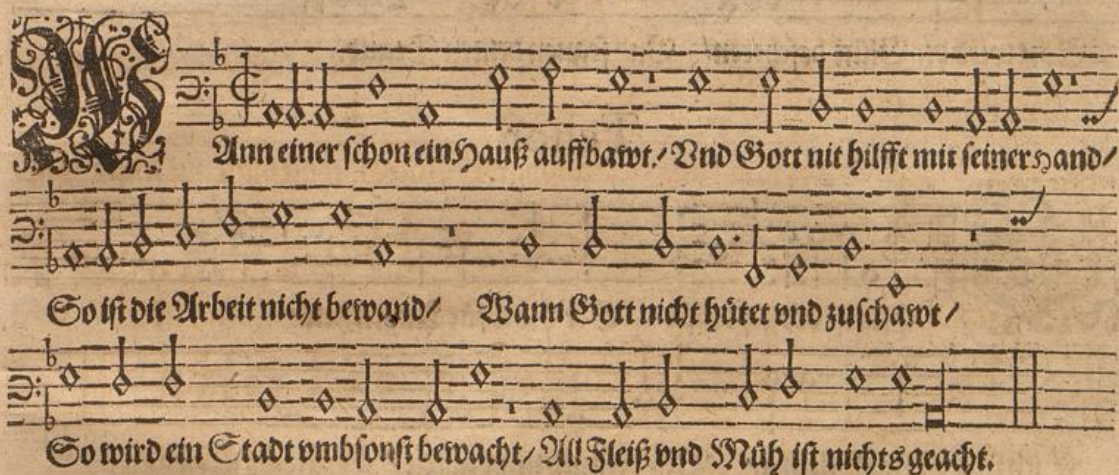 WAnn einer schon ein Hauß auffbawt/ Vnd Gott nit hilfft mit seiner Hand/
So ist die Arbeit nicht bewand/ Wann Gott nicht hütet vnd zuschawt/
So wird ein Stadt vmbsonst bewacht/ All Fleiß vnd Müh ist nichts geacht.